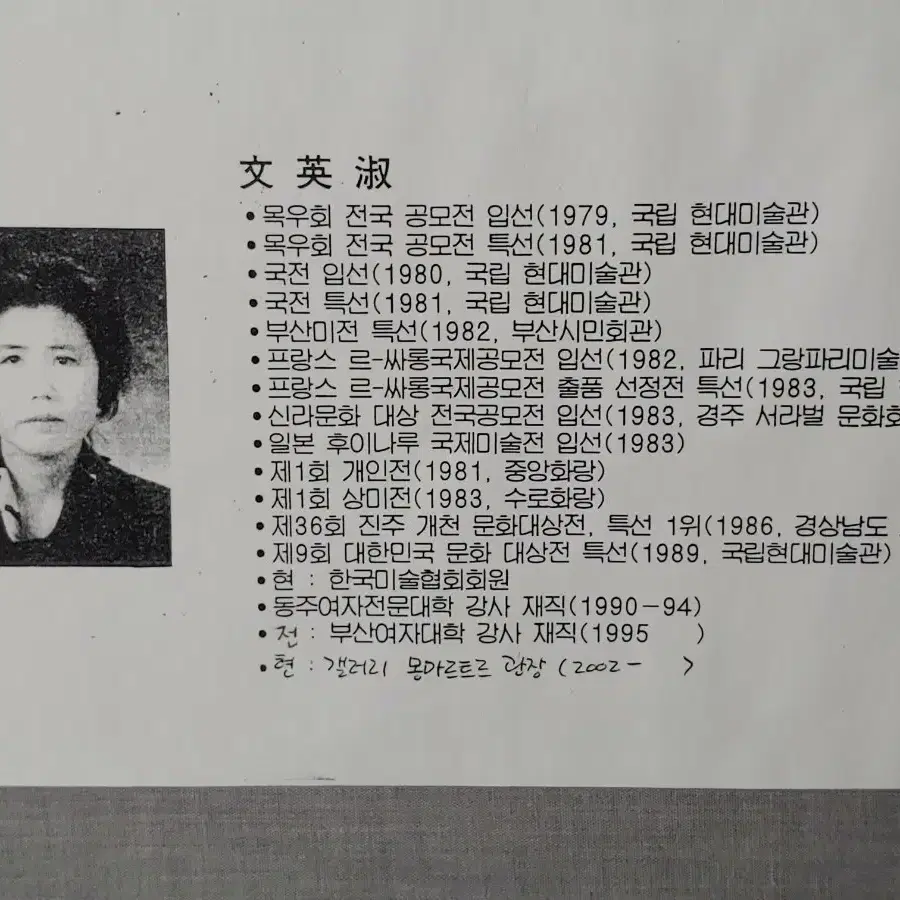 文英淑
• 목우회 전국 공모전 입선(1979, 국립 현대미술관)
• 목우회 전국 공모전 특선(1981, 국립 현대미술관)
• 국전 입선(1980, 국립 현대미술관)
• 국전 특선(1981, 국립 현대미술관)
• 부산미전 특선(1982, 부산시민회관)
• 프랑스 르-싸롱국제공모전 입선(1982, 파리 그랑파리미술
• 프랑스 르-싸롱국제공모전 출품 선정전 특선(1983, 국립
• 신라문화 대상 전국공모전 입선(1983, 경주 서라벌 문화회
• 일본 후이나루 국제미술전 입선(1983)
• 제1회 개인전(1981, 중앙화랑)
• 제1회 상미전(1983, 수로화랑)
• 제36회 진주 개천 문화대상전, 특선 1위(1986, 경상남도
• 제9회 대한민국 문화 대상전 특선(1989, 국립현대미술관)
• 현 : 한국미술협회회원
• 동주여자전문대학 강사 재직(1990-94)
• 전 : 부산여자대학 강사 재직(1995 )
• 현 : 갤러리 몽마르트르 관장 (2002- )